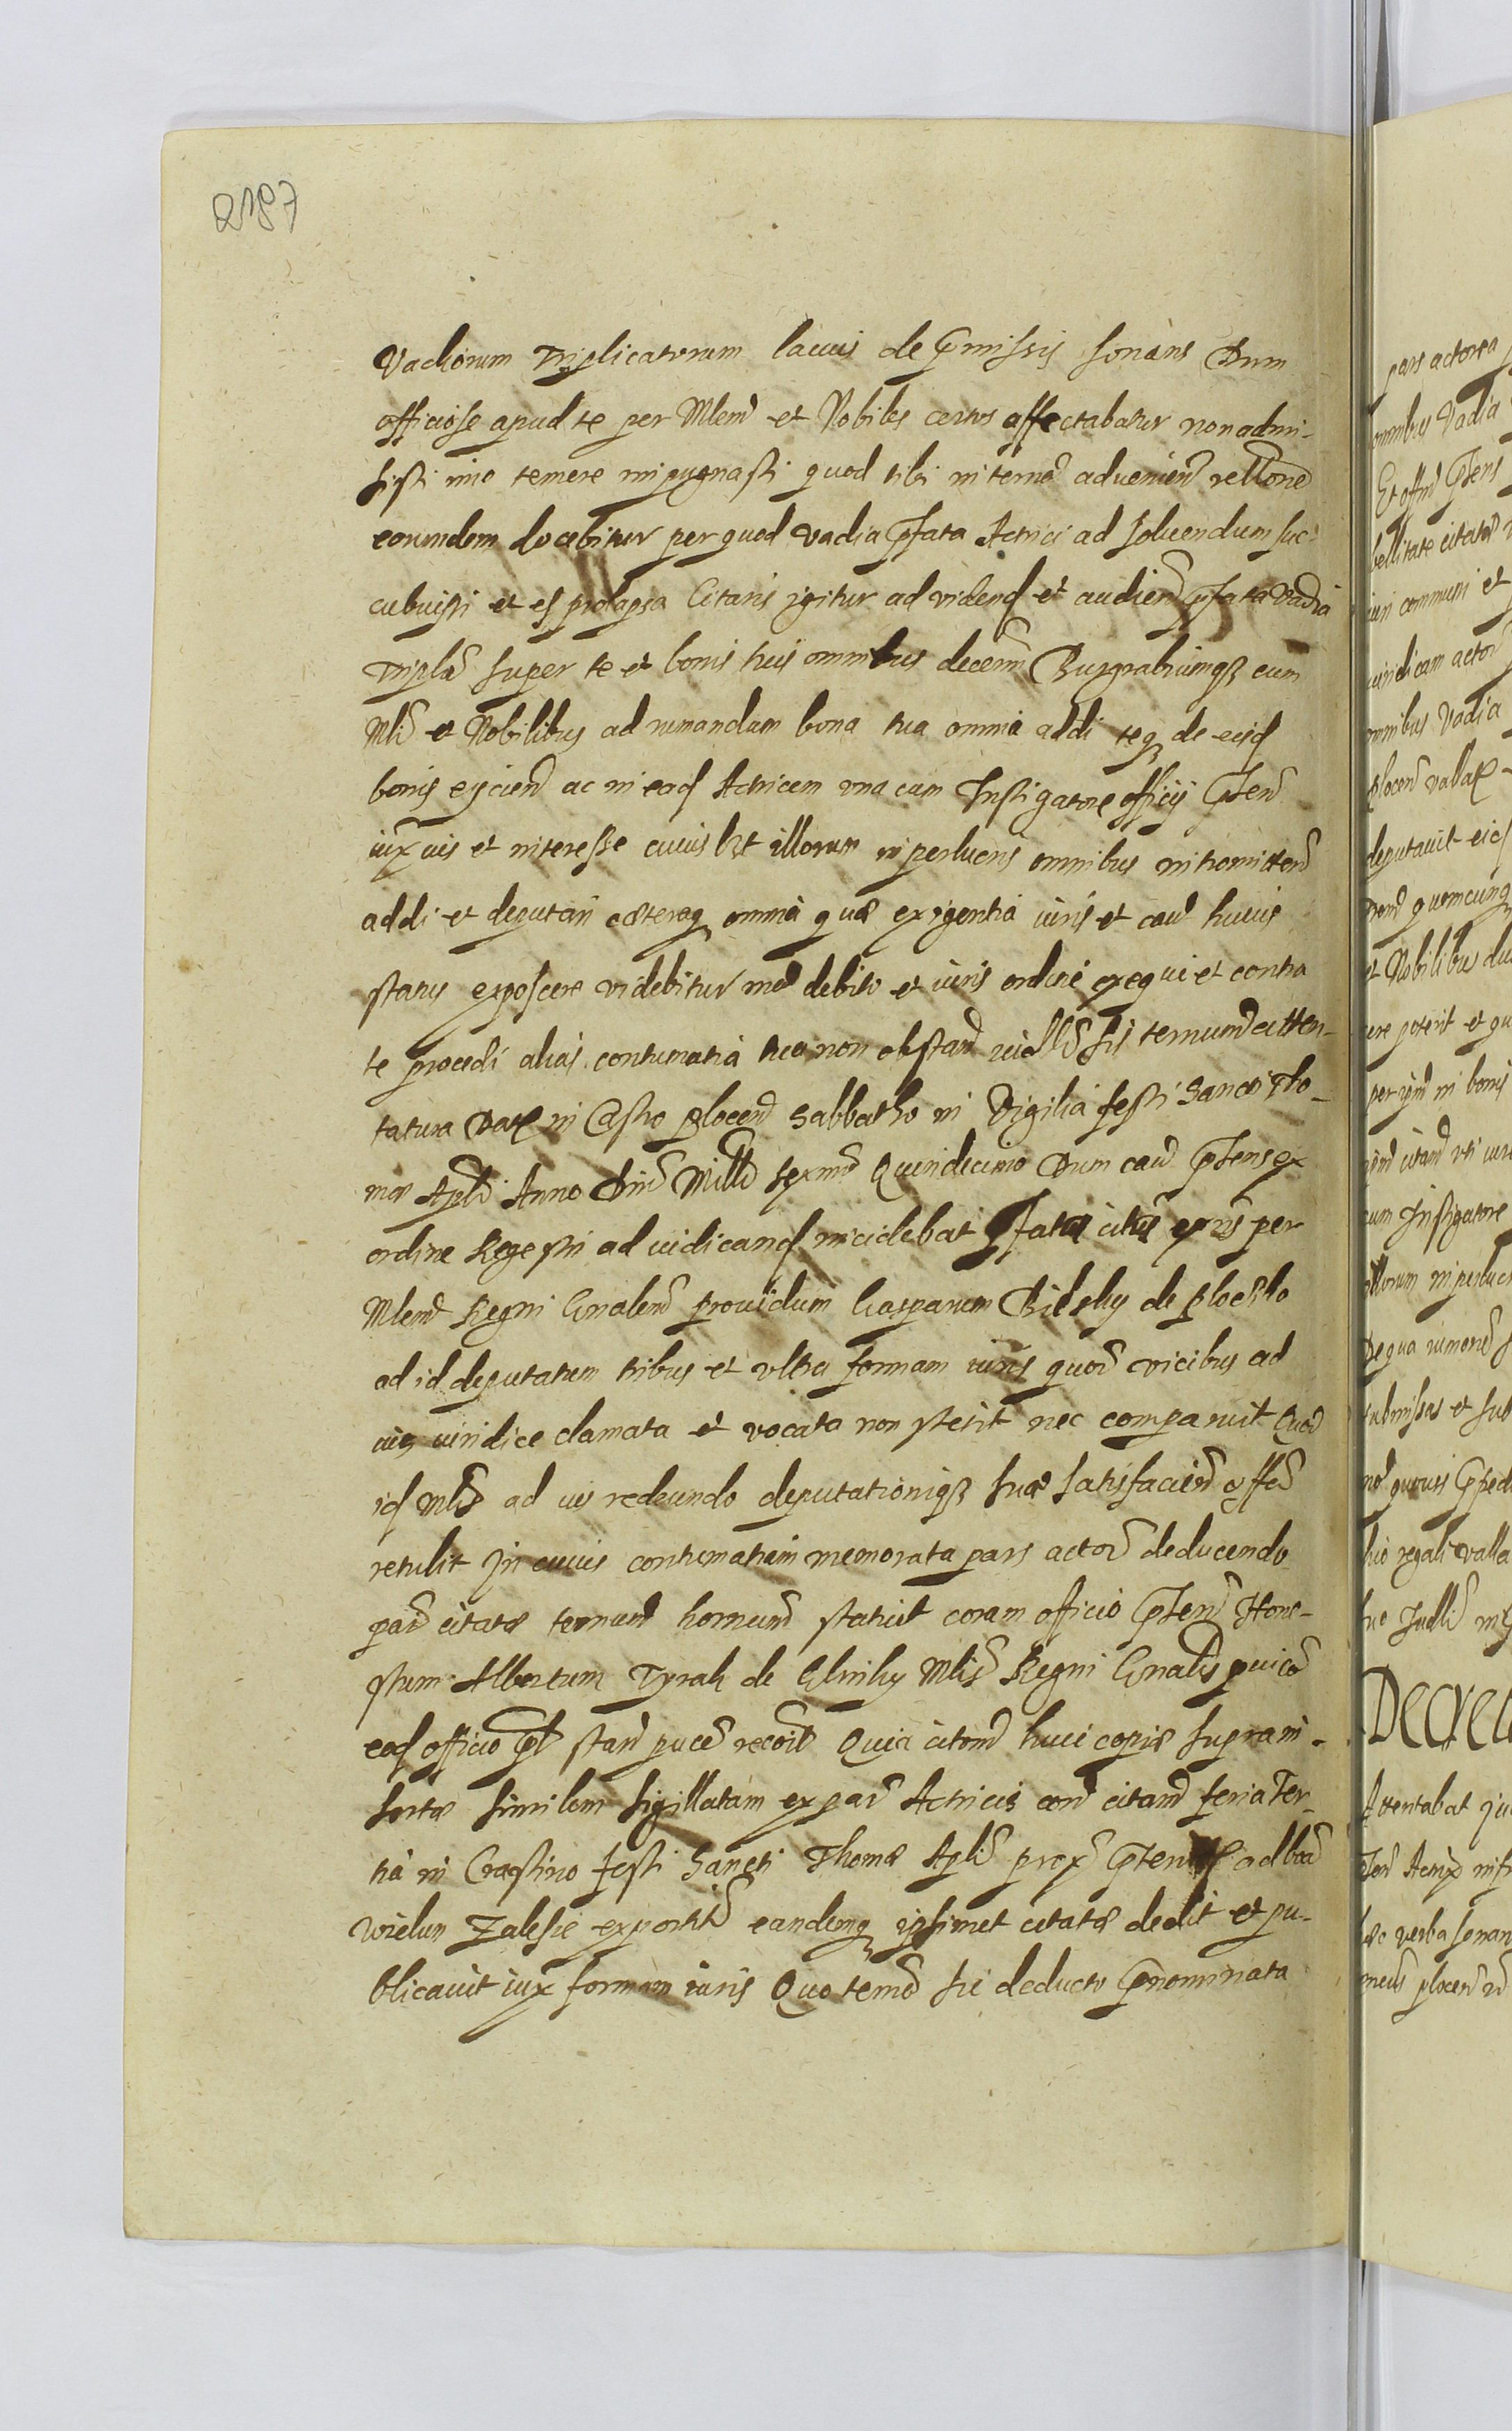 2187
Vadiorum Triplicatorum lacuis de pmissis sonans Dum
officiose apud te per Mlem et Nobiles certos affectabatur non admi-
sisti imo temere impugnasti quod tibi in termo advenien rellone
eorundem docebitur per quod vadia pfata Actrici ad soluendum suc-
cubuisti et es prolapsa Citaris igitur ad vidend et audien pfata Vadia
Tripla super te et bonis tuis omnibus decerni Burgrabiumq cum
Mli et Nobilibus ad rumandam bona tua omnia addi teq de eisd
bonis eijcien ac in ead Actricem una cum Instigatore officij pten
iux ius et interesse cuius lbt illorum in perlucris omnibus intromitten
addi et deputari cæteraq omnia quæ exigentia iuris et cau huius
status exposcere videbitur mod debito et iuris ordine exequi et contra
te procedi alias contumatia tua non obstan iudlr sis terminum atten-
tatura Dat in Castro Plocen Sabbatho in Vigilia festi Sancti Tho-
mæ Apli Anno Dni Milli sexmo Quindecimo Dum cau ptens ex
ordine Regestri ad iudicand incidebat pfata citta ex ns per
Mlem Regni Gnalem prouidum Casparum Bilsky de Plocsko
ad id deputatum tribus et ultra formam iuris quor vicibus ad
ius iuridice clamata et vocata non stetit nec comparuit Quod
id Mlis ad ius redeundo deputationiq suæ satisfacien effe
retulit In cuius contumatiam memorata pars actor deducendo
par citatæ terminum hornum statuit coram officio pten Hone-
stum Albertum Tyrak de Glinky Mlis Regni Gnalis qui co
ead officio pl stan puce recoit Quia citonem huic copiæ suprain-
sertæ similem sigillatam ex par Actricis con citand feria Ter-
tia in Crastino festi Sancti Thomæ Apli prox pten ad bona
Wielun Zalesie exportit eandemq ipsimet citatæ dedit et pu-
blicavit iux formam iuris Quo termo sic deducto pnominata
pars actorea
omnibus Vadia
Et offm ptens
iuri communi et
iuridicam actor
omnibus Vadia
deputavit eid
quemcunq
et Nobilibus du
ere poterit et qu
in bonis
cum Instigatore
illorum in perlucr
De qua rumone
submissas et sub
hio regali valla
Decre
Attentabat
hæc verba sonan